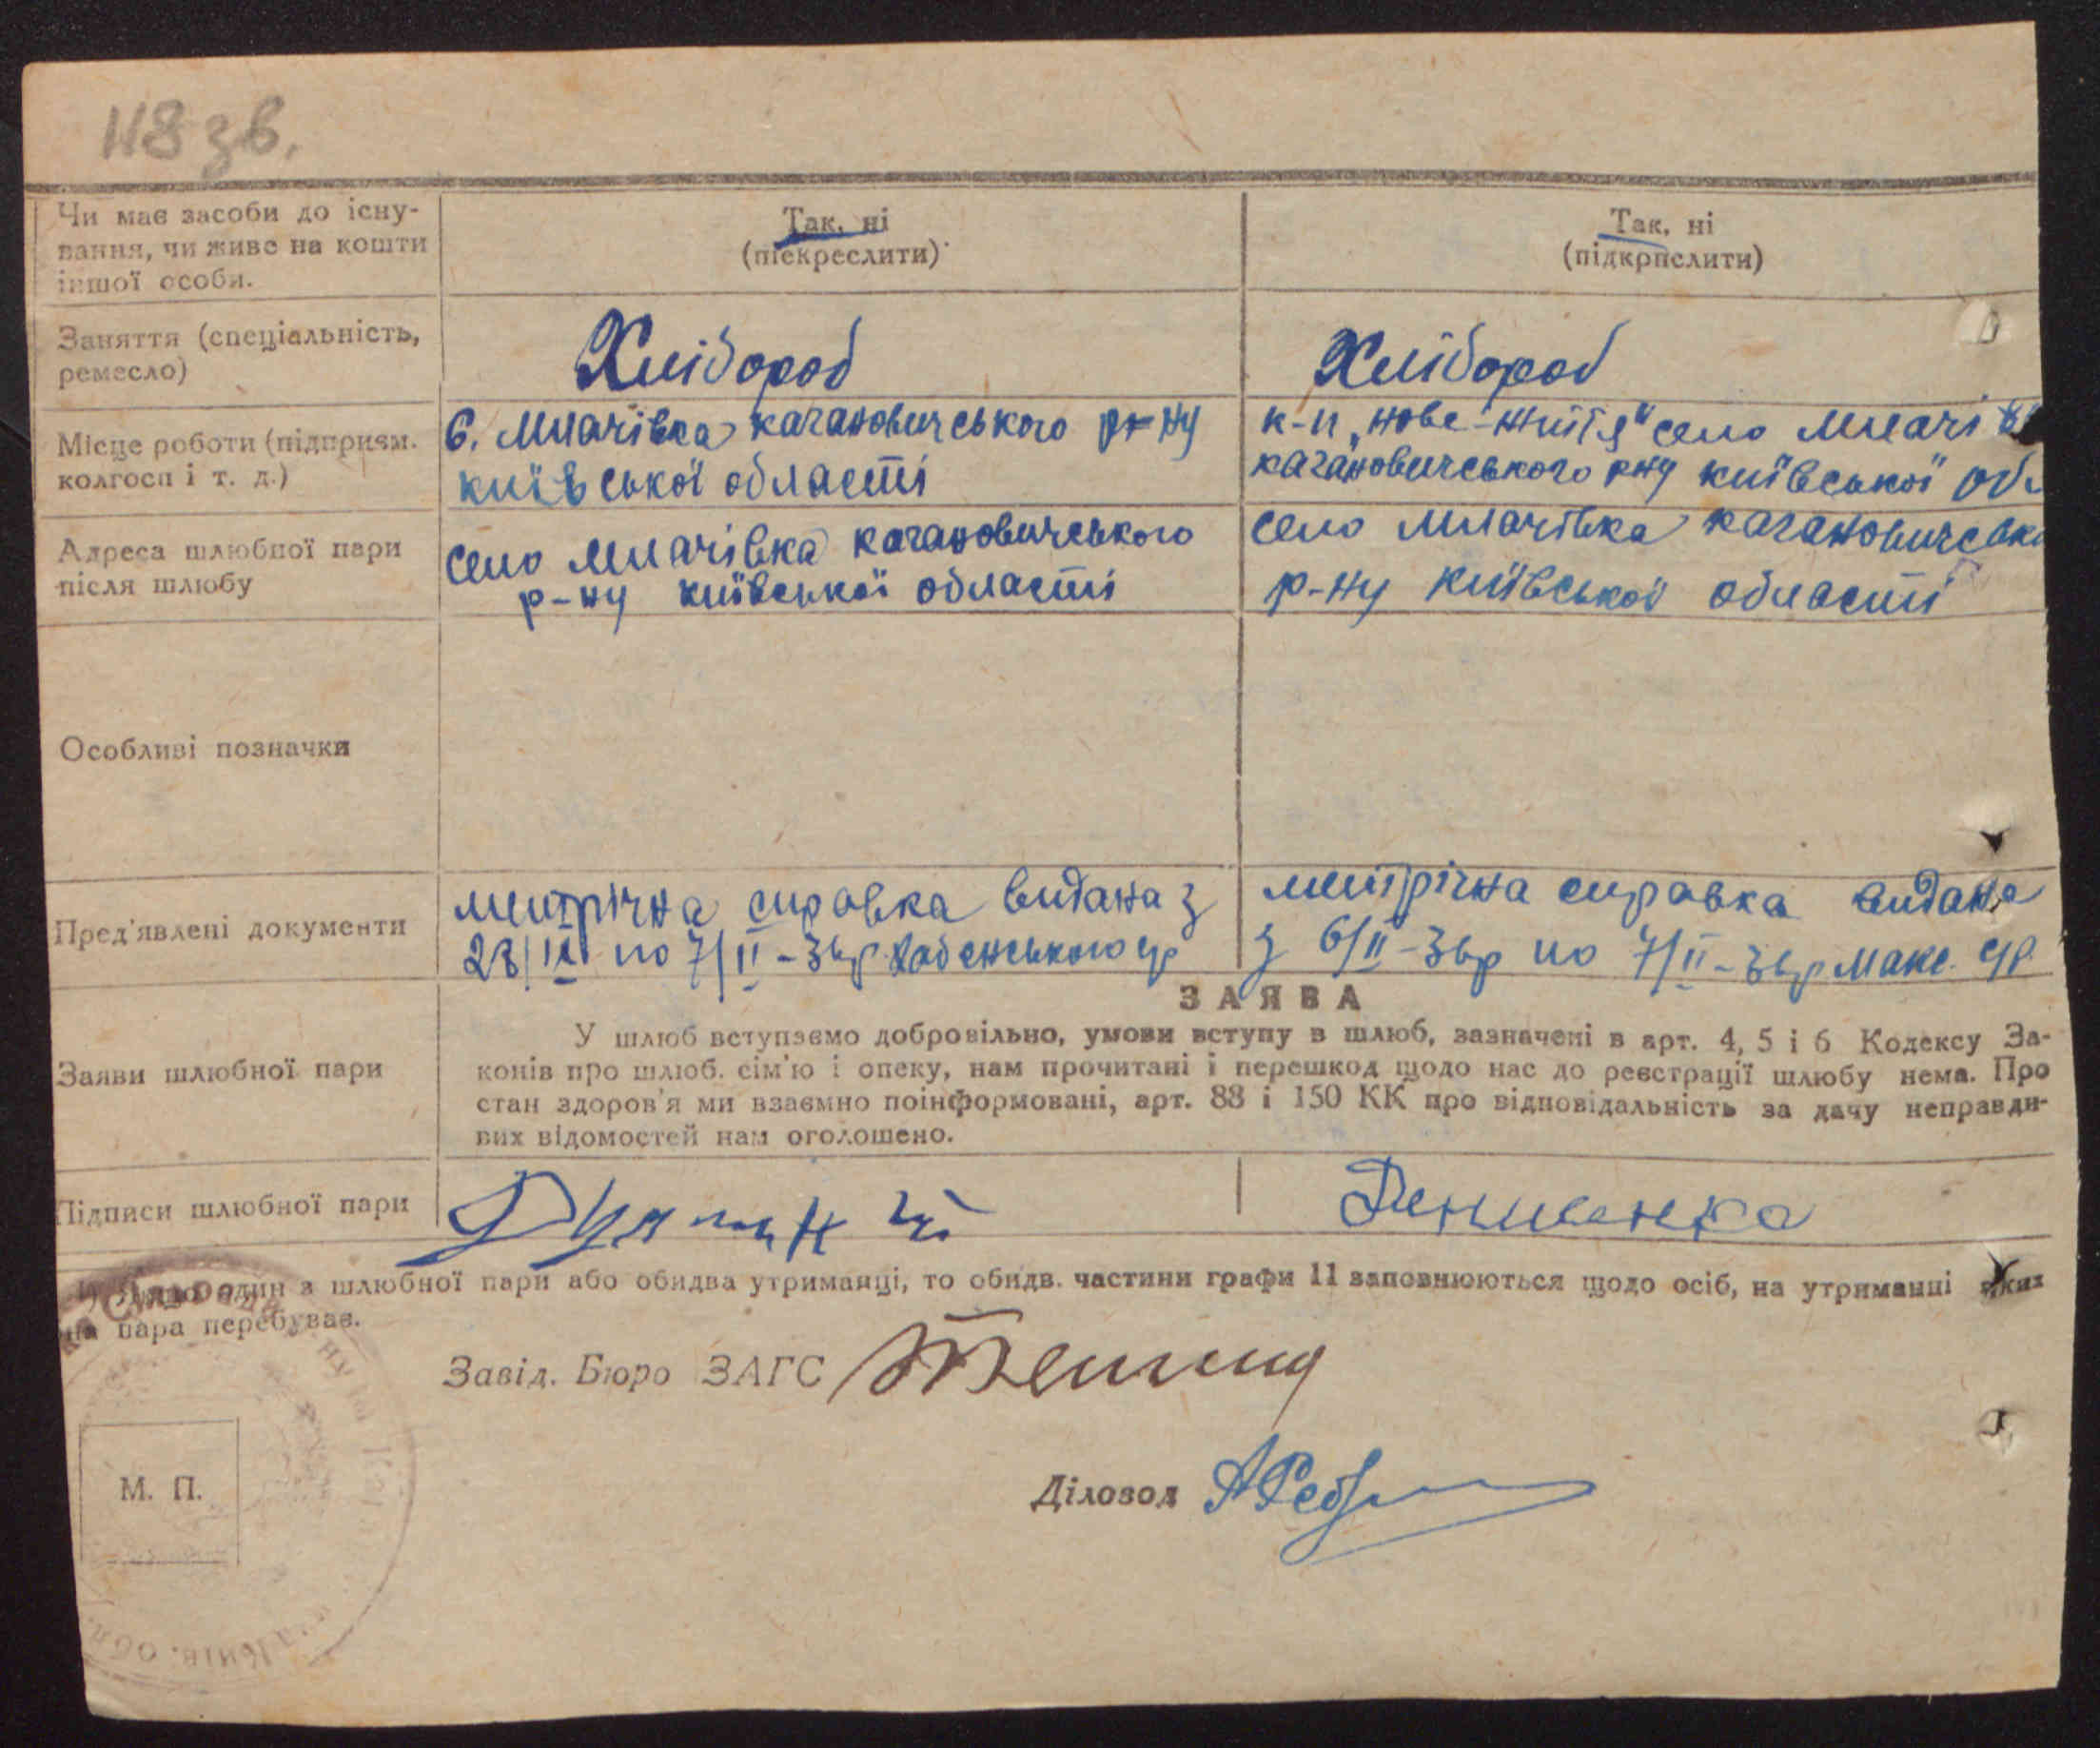 118 зв.
Чи має засоби до існу-
вання, чи живе на кошти
іншої особи.
Так, ні
(піекреслити)
Так, ні
(підкрпслити)
Заняття (спеціальність,
ремесло)
Хлібороб
Хлібороб
Місце роботи (підприєм.
колгосп і т. д.)
С. Млачівка кагановичського р-ну
київської області
к-п „Нове-життя" село Млачів
кагановичського рну київської об
Адреса шлюбної пари
після шлюбу
село Млачівка кагановичського
р-ну київської області
село Млачівка кагановичськ
р-ну київської області
Особливі позначки
Пред'явлені документи
метрічна справка видана з
28/ по 7/II-34р. Хабенського
метрічна справка видана
з 6/II-34р по 7/II-34р Мак.
ЗАЯВА
Заяви шлюбної пари
У шлюб вступаємо добровільно, умови вступу в шлюб, зазначені в арт. 4, 5 і 6 Кодексу За-
конів про шлюб. сім'ю і опеку, нам прочитані і перешкод щодо нас до реєстрації шлюбу нема. Про
стан здоров'я ми взаємно поінформовані, арт. 88 і 150 КК про відповідальність за дачу неправди-
вих відомостей нам оголошено.
Підписи шлюбної пари
Денисенко
один з шлюбної пари або обидва утриманці, то обидв. частини графи 11 заповнюються щодо осіб, на утриманні яких
пара перебуває.
Завід. Бюро ЗАГС
Діловод
М. П.